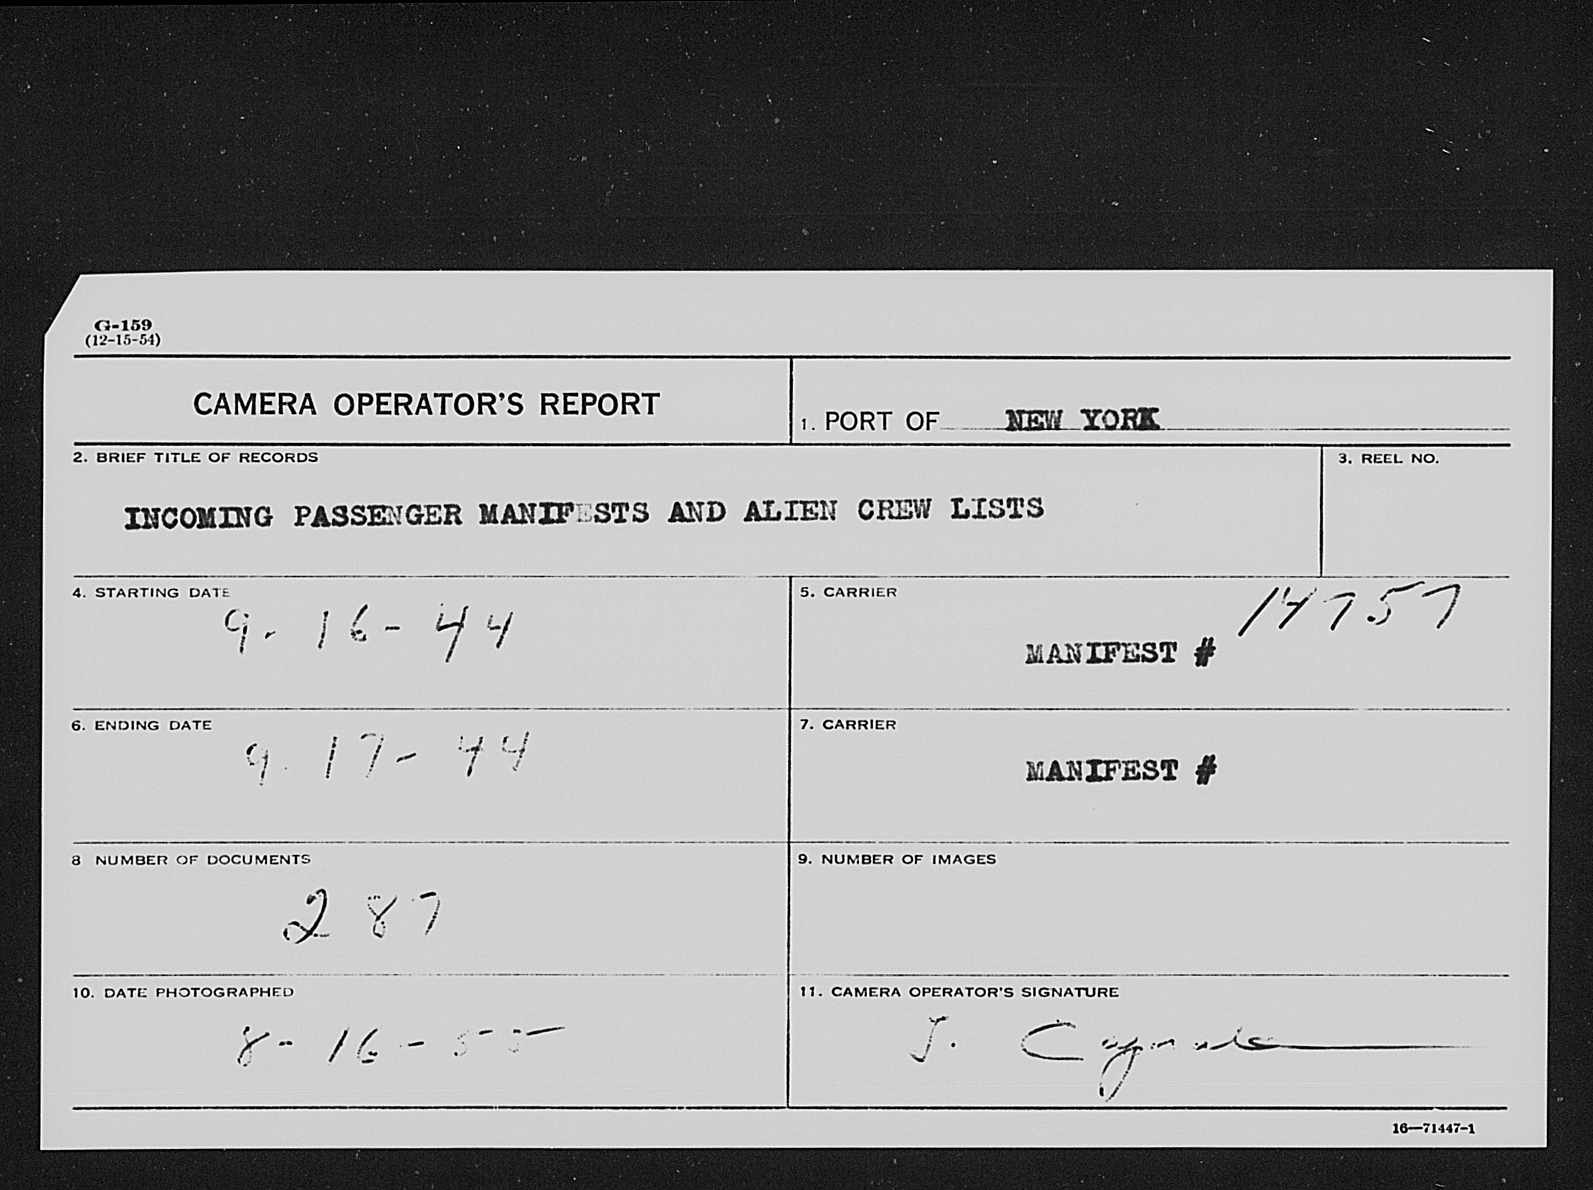 G-159
(12-15-54)
CAMERA OPERATOR'S REPORT
1. PORT OF NEW YORK
2. BRIEF TITLE OF RECORDS
3. REEL NO.
INCOMING PASSENGER MANIFESTS AND ALIEN CREW LISTS
4. STARTING DATE
9-16-44
5. CARRIER
MANIFEST # 14757
6. ENDING DATE
9-17-44
7. CARRIER
MANIFEST #
8 NUMBER OF DOCUMENTS
287
9. NUMBER OF IMAGES
10. DATE PHOTOGRAPHED
8-16-55
11. CAMERA OPERATOR'S SIGNATURE
J.
16—71447-1